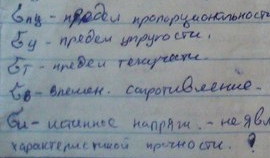 σпц - предел пропорциональности
σу - предел упругости.
σт - предел текучести.
σв - времен. сопротивление.
σи - истинное напряж. - не явл
характеристикой прочности. ?